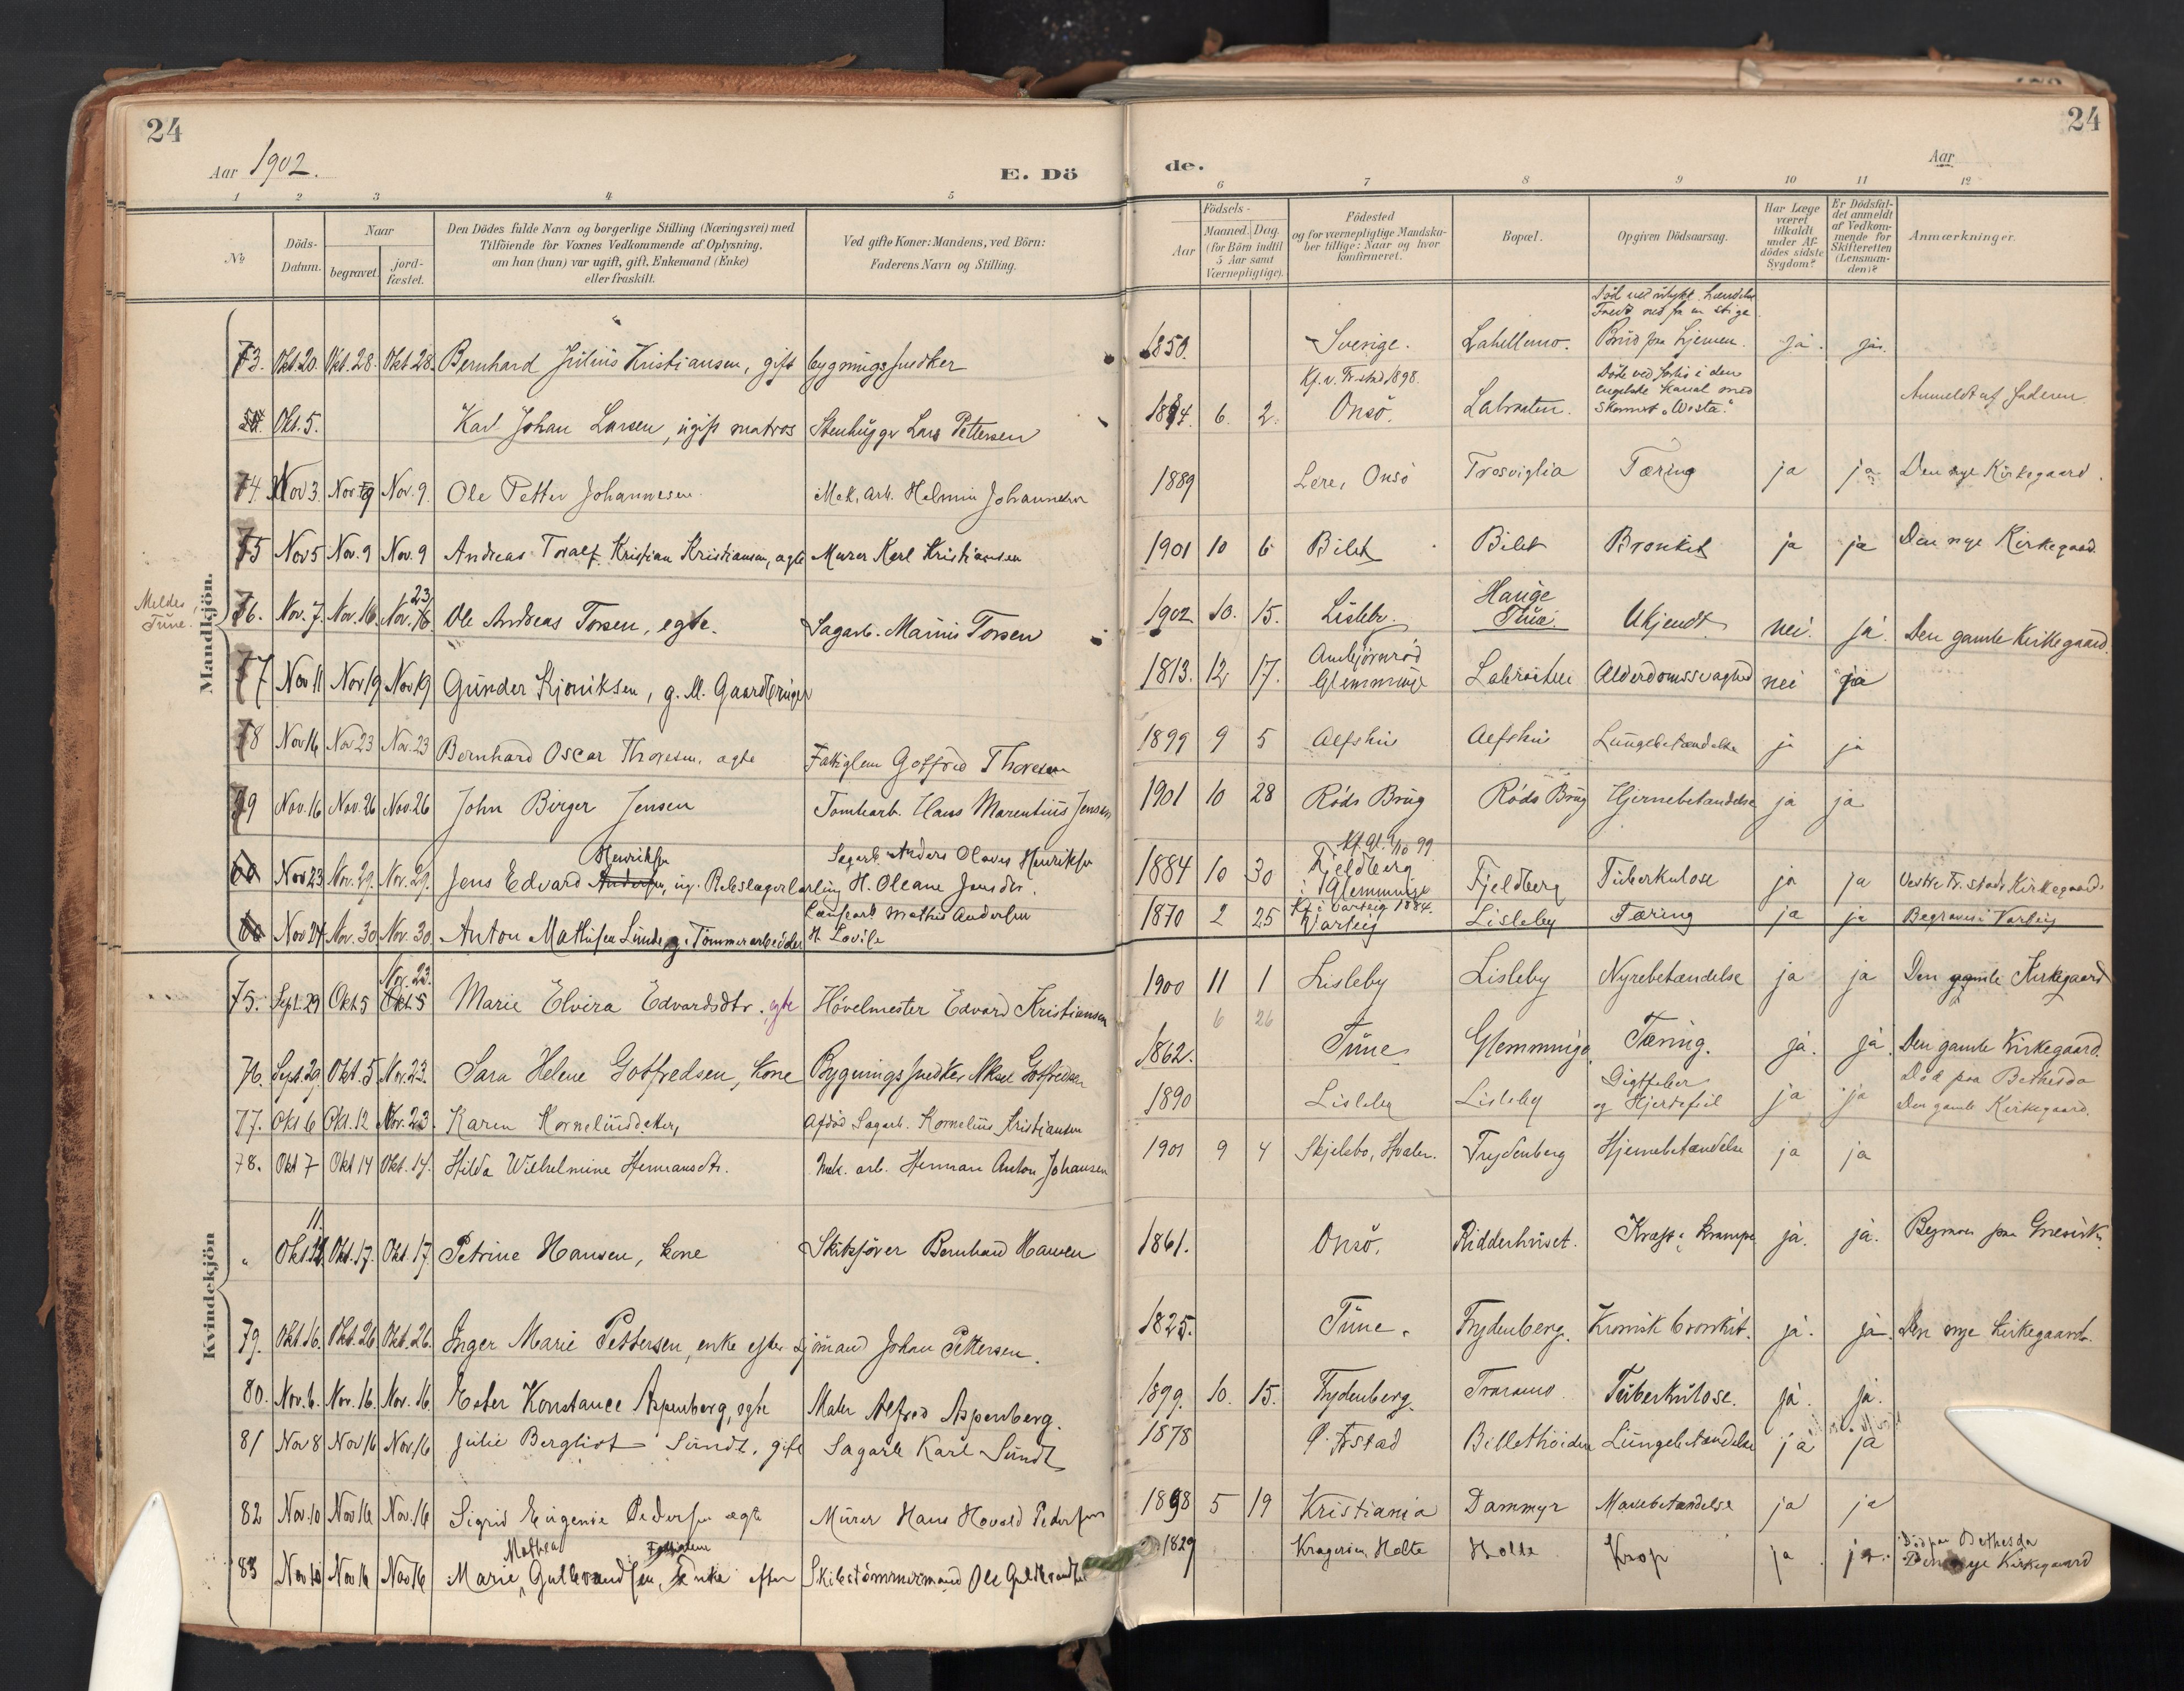 24
24
Aar 1902.
E. Dö
de.
Aar
1 2 3 4 5 6 7 8 9 10 11 12
No
Döds-Datum.
Naar
begravet.
jord-fæstet.
Den Dödes fulde Navn og borgerlige Stilling (Næringsvei) med
Tilföiende for Voxnes Vedkommende af Oplysning,
om han (hun) var ugift, gift, Enkemand (Enke)
eller fraskilt.
Ved gifte Koner: Mandens, ved Börn:
Faderens Navn og Stilling.
Födsels-
Aar
Maaned. Dag.
(for Börn indtil
5 Aar samt
Værnepligtige).
Födested
og for værnepligtige Mandska-
ber tillige: Naar og hvor
konfirmeret.
Bopæl.
Opgiven Dödsaarsag.
Har Læge
været
tilkaldt
under Af-
dödes sidste
Sygdom?
Er Dödsfal-
det anmeldt
af Vedkom-
mende for
Skifteretten
(Lensman-
den)?
Anmærkninger.
Mandkjön.
73. Okt. 20. Okt. 28. Okt. 28. Bernhard Julius Kristiansen, gift bygningssnedker 1850. Sverige. Labellmo. Död ved ulykk. hændelse
Faldt ned fra en stige ja. ja.
Okt. 5. Karl Johan Larsen, ugift matros Stenhugger Lars Pettersen 6. 2. Kf. v. Fr.stad 1898.
Onsö. Labraaten. Döde ved forlis i den
engelske Kanal med
"Vesta." Anmeldt af Faderen.
74. Nov 3. Nov 9 Nov. 9. Ole Petter Johannesen. Mek. Arb. Helmin Johannesen 1889 Lere, Onsö Trosviglia Tæring ja ja Den nye Kirkegaard.
75 Nov 5 Nov. 9 Nov. 9 Andreas Toralf Kristian Kristiansen, ægte Murer Karl Kristiansen 1901 10 6 Bilet Bilet Bronkit ja ja Den nye Kirkegaard.
Meldes Tune.
76. Nov. 7. Nov. 16. Nov. 16. 23/ Ole Andreas Torsen, egte. Sagarb. Marius Torsen 1902 10. 15. Lisleby. Hauge
Tune. Ukjendt nei. ja. Den gamle Kirkegaard.
77 Nov 11 Nov 19 Nov 19 Gunder Kjöniksen, g. M. 1813. 12 17. Ambjörnröd
Glemminge Alderdomssvaghed nei ja
78 Nov 16 Nov 23 Nov. 23 Bernhard Oscar Thoresen, ægte Fattiglem Gotfred Thoresen 1899 9 5 Alfshus Alfshus Lungebetændelse ja ja
79 Nov. 16 Nov. 26 Nov. 26 John Birger Jensen Tomtearb. Hans Marentius Jensen 1901 10 28 Röds Brug Röds Brug Hjernebetændelse ja ja
Nov 23 Nov. 29. Nov. 29. Jens Edvard Henriksen, ug. Rebslagerlærling Sagarb. Anders Olaves Henriksen
H. Oleane Jensdtr. 1884 10 30 Fjeldberg
i Glemminge Fjeldberg Tuberkulose ja ja Vestre Fr.stads Kirkegaard.
Nov 24 Nov. 30 Nov. 30. Anton Mathisen Lunde, g. Tömmerarbeider Mathis Andersen
H. Lovise 1870 2 25 Kf. i Varteig 1884.
Varteig Lisleby Tæring ja ja Begraves i Varteig
Kvindekjön
75. Sept. 29 Okt 5 Okt. 5 Nov. 23. Marie Elvira Edvardsdtr. egte Hövelmester Edvard Kristiansen 1900 11 1 Lisleby Lisleby Nyrebetændelse ja ja Den gamle Kirkegaard
6 26
76. Sept. 29. Okt. 5 Nov. 23. Sara Helene Gotfredsen, kone Bygningssnedker Aksel Gotfredsen 1862. Tune Glemminge Tæring. ja. ja. Den gamle Kirkegaard.
77. Okt 6 Okt. 12 Nov. 23. Karen Korneliusdatter, Afdöd Sagarb. Kornelius Kristiansen 1890 Lisleby Lisleby Gigtfeber
og Hjertefeil ja ja Död paa Bethesda
Den gamle Kirkegaard.
78. Okt 7 Okt 14 Okt. 14. Hilda Wilhelmine Hermansdtr. Mek. arb. Herman Anton Johansen 1901 9 4 Skjelsbo, Hvaler. Frydenberg Hjernebetændelse ja ja
" Okt. 11. Okt. 17. Okt. 17 Petrine Hansen, kone Skibsförer Bernhard Hansen 1861. Onsö. Ridderhuset. ja. ja.
79. Okt. 16. Okt. 26 Okt. 26. Inger Marie Pettersen, enke efter Sjömand Johan Pettersen. 1825. Tune. Frydenberg. Kronisk bronkit. ja. ja. Den nye Kirkegaard.
80. Nov. 6. Nov. 16. Nov. 16. Ester Konstance Aspenberg, egte Maler Alfred Aspenberg. 1899. 10. 15. Frydenberg. Traramo. Tuberkulose. ja. ja.
81 Nov 8 Nov 16 Nov 16 Julie Bergliot Sundt, gift Sagarb Karl Sundt 1878 Billethöiden Lungebetændelse ja ja
82 Nov. 10 Nov 16 Nov. 16 Sigrid Eugenie Pedersen ægte Murer Hans Hovald Pedersen 1898 5 19 Kristiania Dammyr Mavebetændelse ja ja
83 Nov 10 Nov 16 Nov 16 Marie Mathea Gulbrandsen, Enke efter Skibstömmermand Ole Gulbrandsen 1829 Holte Krop ja ja. Död paa Bethesda
Den nye Kirkegaard